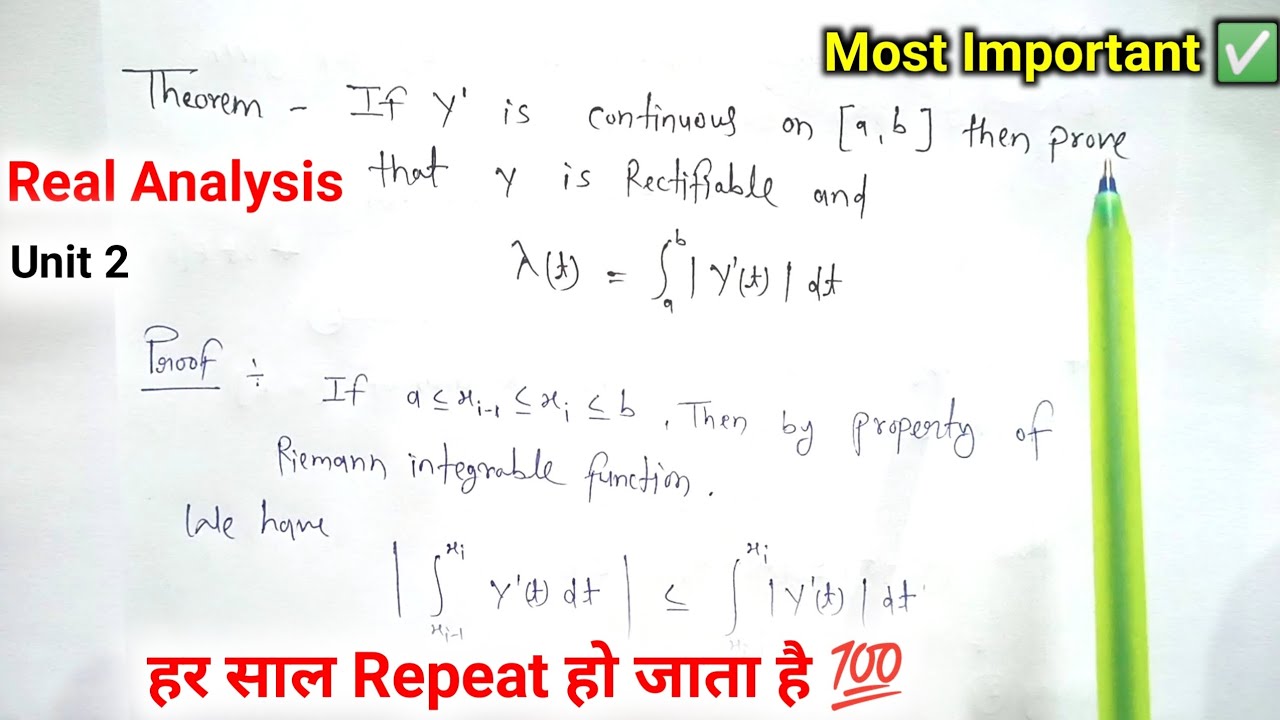 Most Important ✅
Theorem - If γ' is continuous on [a, b] then prove
Real Analysis
that γ is Rectifiable and
Unit 2
λ(t) = ∫_a^b |γ'(t)| dt
Proof ÷
If a ≤ x_{i-1} ≤ x_i ≤ b, Then by property of
Riemann integrable function.
We have
|∫_{x_{i-1}}^{x_i} γ'(t) dt| ≤ ∫^{x_i} |γ'(t)| dt
हर साल Repeat हो जाता है 💯